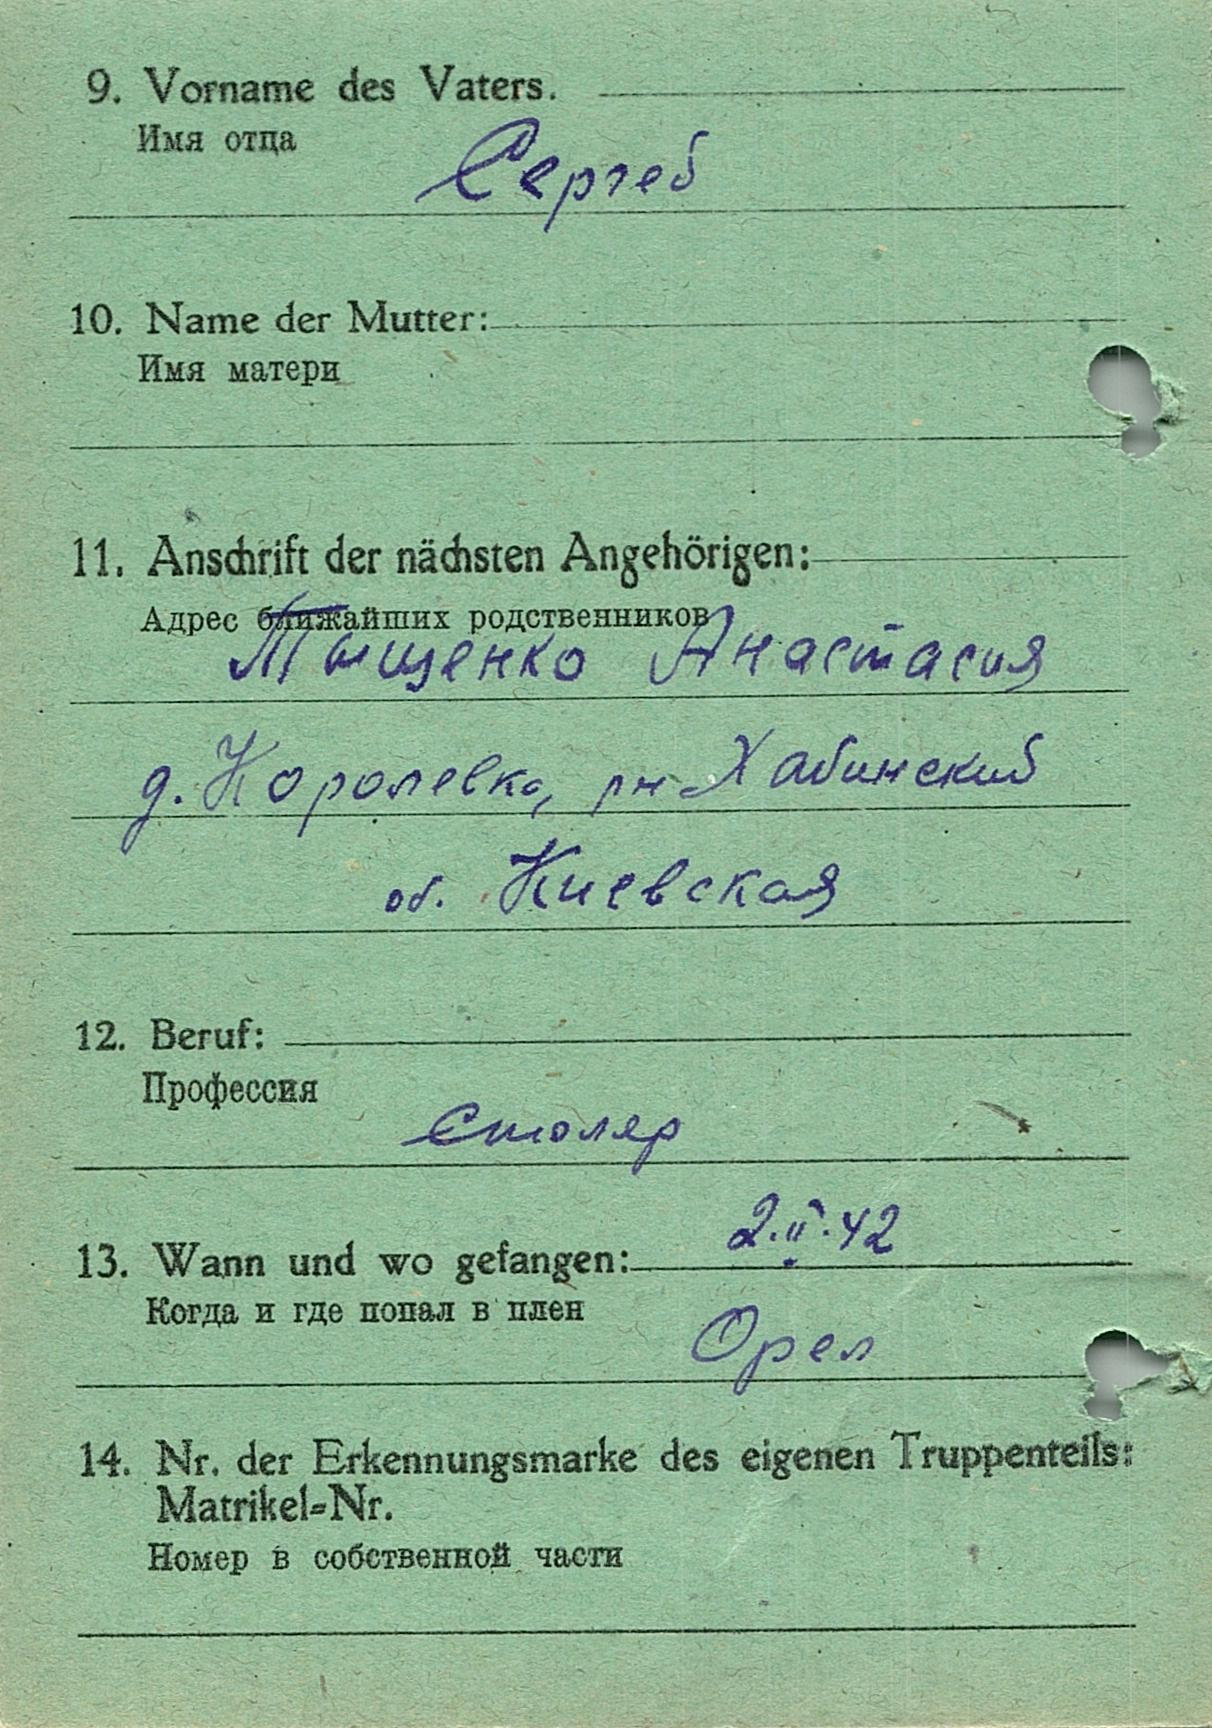 9. Vorname des Vaters.
Имя отца
Сергей
10. Name der Mutter:
Имя матери
11. Anschrift der nächsten Angehörigen:
Адрес ближайших родственников
Тыщенко Анастасия
д. Королевка, рн Хабинский
об. Киевская
12. Beruf:
Профессия
Столяр
13. Wann und wo gefangen: 2.II.42
Когда и где попал в плен
Орел
14. Nr. der Erkennungsmarke des eigenen Truppenteils:
Matrikel-Nr.
Номер в собственной части